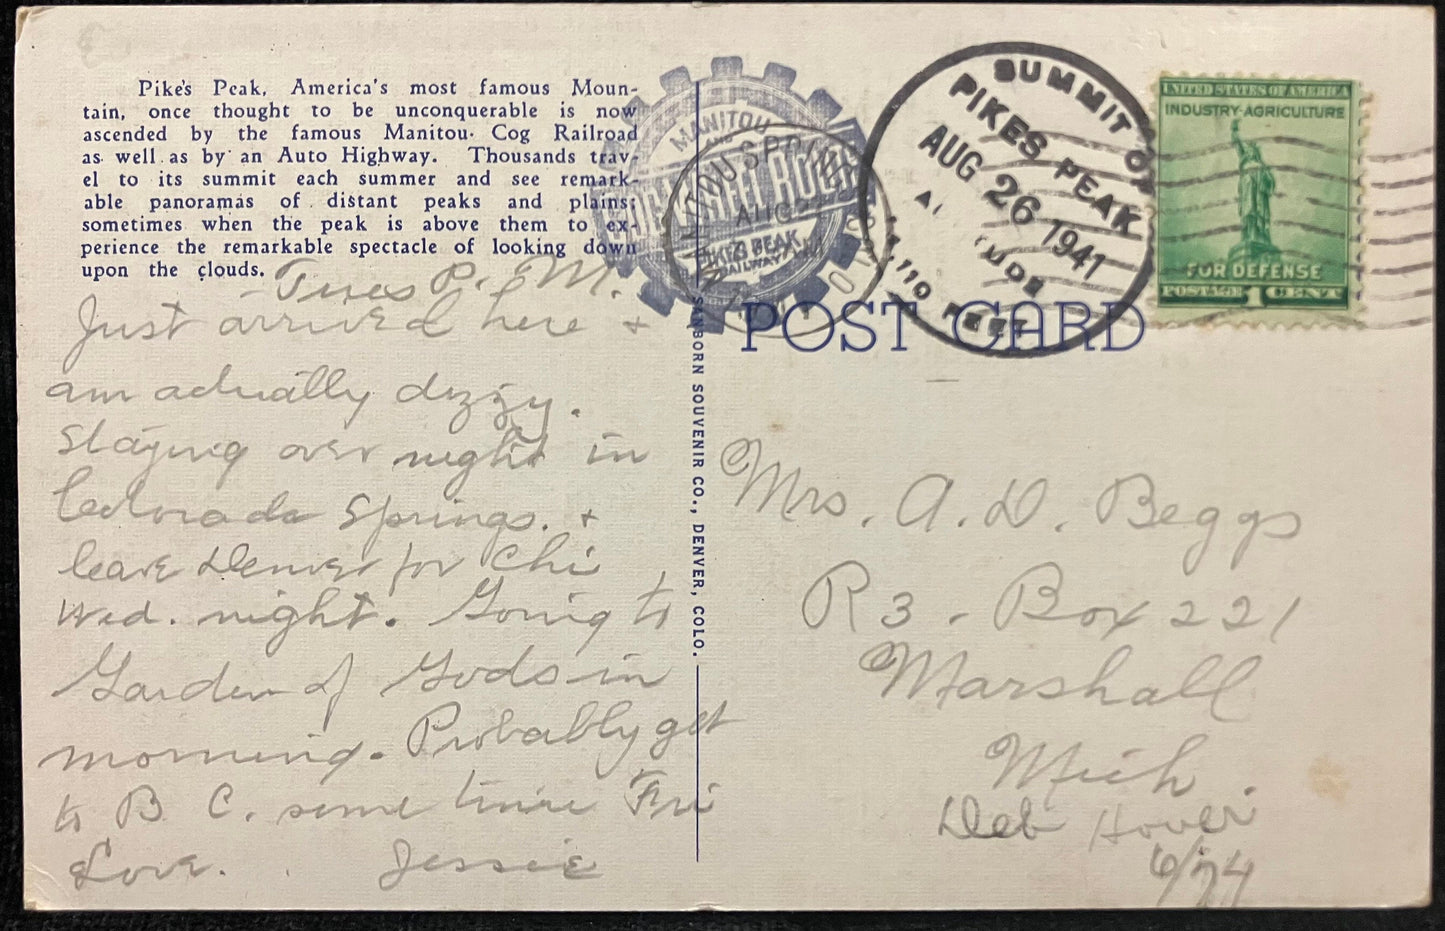 Pike's Peak, America's most famous Moun-
tain, once thought to be unconquerable is now
ascended by the famous Manitou Cog Railroad
as well as by an Auto Highway. Thousands trav-
el to its summit each summer and see remark-
able panoramas of distant peaks and plains;
sometimes when the peak is above them to ex-
perience the remarkable spectacle of looking down
upon the clouds.
Tues P. M.
Just arrived here +
am actually dizzy.
Staying over night in
Colorado Springs. +
leave Denver for Chi
Wed. night. Going to
Garden of Gods in
morning. Probably get
to B C. some time Fri
Love. Jessie
SANBORN SOUVENIR CO., DENVER, COLO.
MANITOU
AND
PIKES PEAK
RAILWAY
MANITOU SPRINGS
AUG
COLO
SUMMIT OF
PIKES PEAK
AUG 26 1941
14,110 FEET
UNITED STATES OF AMERICA
INDUSTRY-AGRICULTURE
FOR DEFENSE
POSTAGE 1 CENT
POST CARD
Mrs. A. D. Beggs
R 3 - Box 221
Marshall
Mich
Deb Hover
6/74